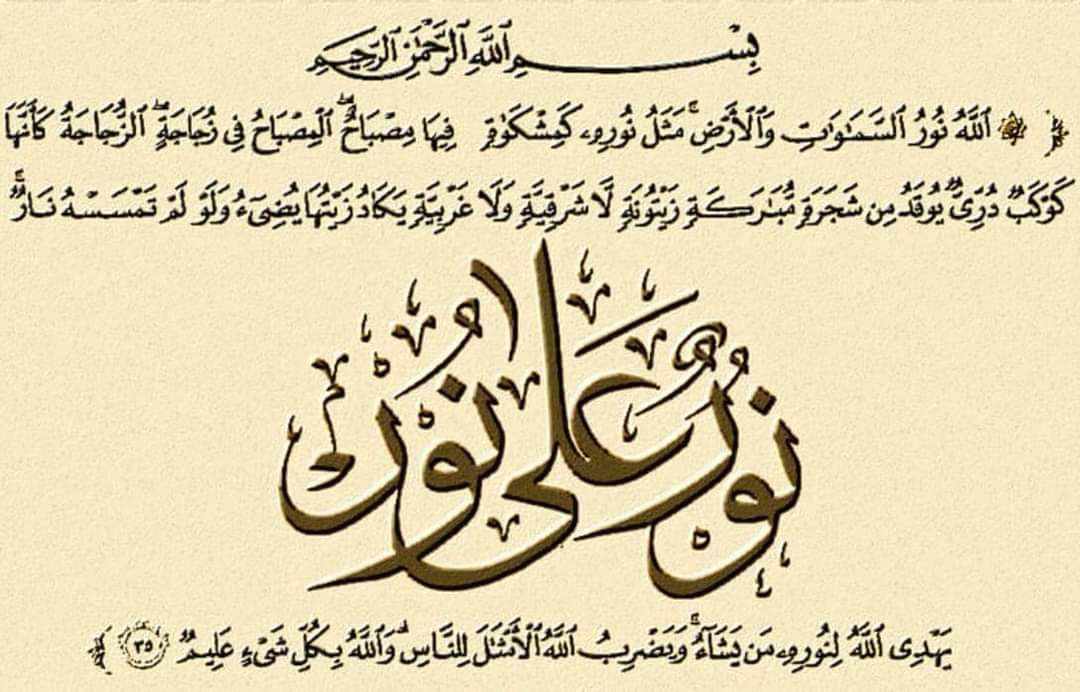 بِسْمِ ٱللَّهِ ٱلرَّحْمَٰنِ ٱلرَّحِيمِ
۞ ٱللَّهُ نُورُ ٱلسَّمَٰوَٰتِ وَٱلْأَرْضِ ۚ مَثَلُ نُورِهِۦ كَمِشْكَوٰةٍ فِيهَا مِصْبَاحٌ ۖ ٱلْمِصْبَاحُ فِى زُجَاجَةٍ ۖ ٱلزُّجَاجَةُ كَأَنَّهَا
كَوْكَبٌ دُرِّىٌّ يُوقَدُ مِن شَجَرَةٍ مُّبَٰرَكَةٍ زَيْتُونَةٍ لَّا شَرْقِيَّةٍ وَلَا غَرْبِيَّةٍ يَكَادُ زَيْتُهَا يُضِىٓءُ وَلَوْ لَمْ تَمْسَسْهُ نَارٌ ۚ
نُورٌ عَلَىٰ نُورٍ
يَهْدِى ٱللَّهُ لِنُورِهِۦ مَن يَشَآءُ ۚ وَيَضْرِبُ ٱللَّهُ ٱلْأَمْثَٰلَ لِلنَّاسِ ۗ وَٱللَّهُ بِكُلِّ شَىْءٍ عَلِيمٌ ٣٥